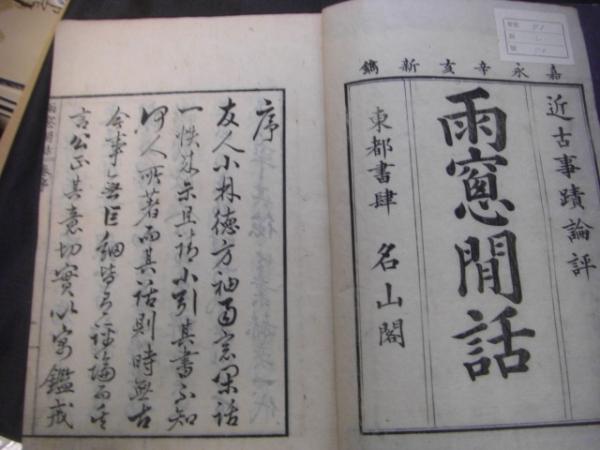 嘉永辛亥新鐫
近古事蹟論評
雨窓閒話
東都書肆 名山閣
序
友人小林德方袖雨窓閑話
一帙來示且請小引其書不知
何人所著而其話則時無古
今事無巨細皆有評論而其
言公正其意切實以寓鑑戒